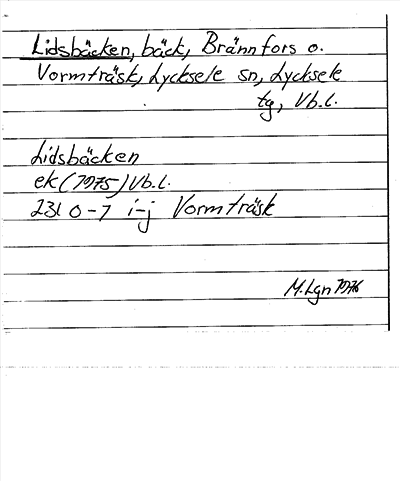 Lidsbäcken, bäck, Brännfors o.
Vormträsk, Lycksele sn, Lycksele
tg, Vb.l.
Lidsbäcken
ek (1975) Vb.l.
23I 0-7 i-j Vormträsk
M.Lgn 1976